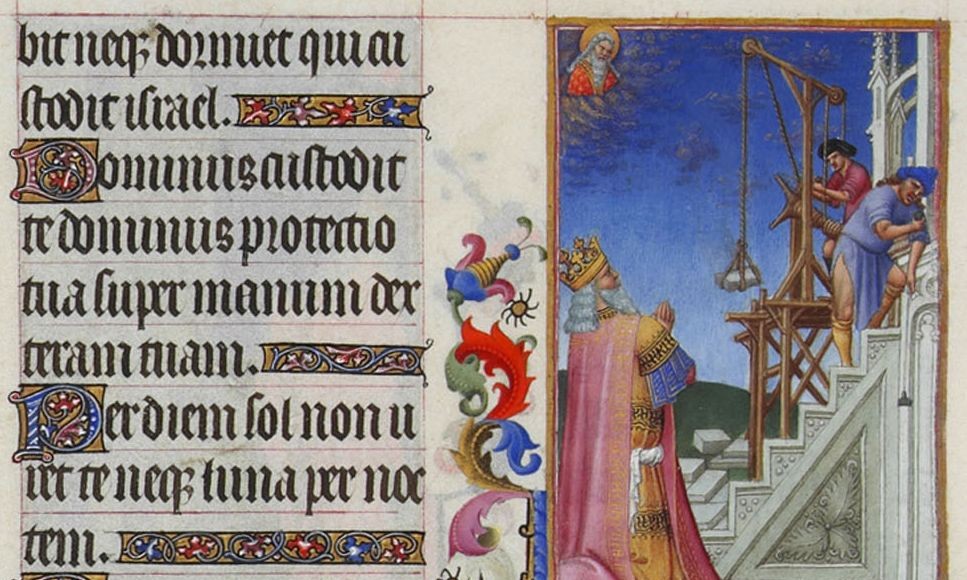 bit neqȝ dormiet qui cu
stodit israel.
Dominus custodit
te dominus protectio
tua super manum dex
teram tuam.
Per diem sol non u
ret te neqȝ luna per noc
tem.